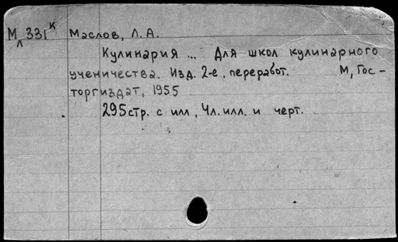 М 331 К Маслов, Л. А.
Л
Кулинария ... Для школ кулинарного
ученичества. Изд. 2-е, переработ. М, Гос-
торгиздат, 1955
295 стр. с илл, 4 л. илл. и черт.